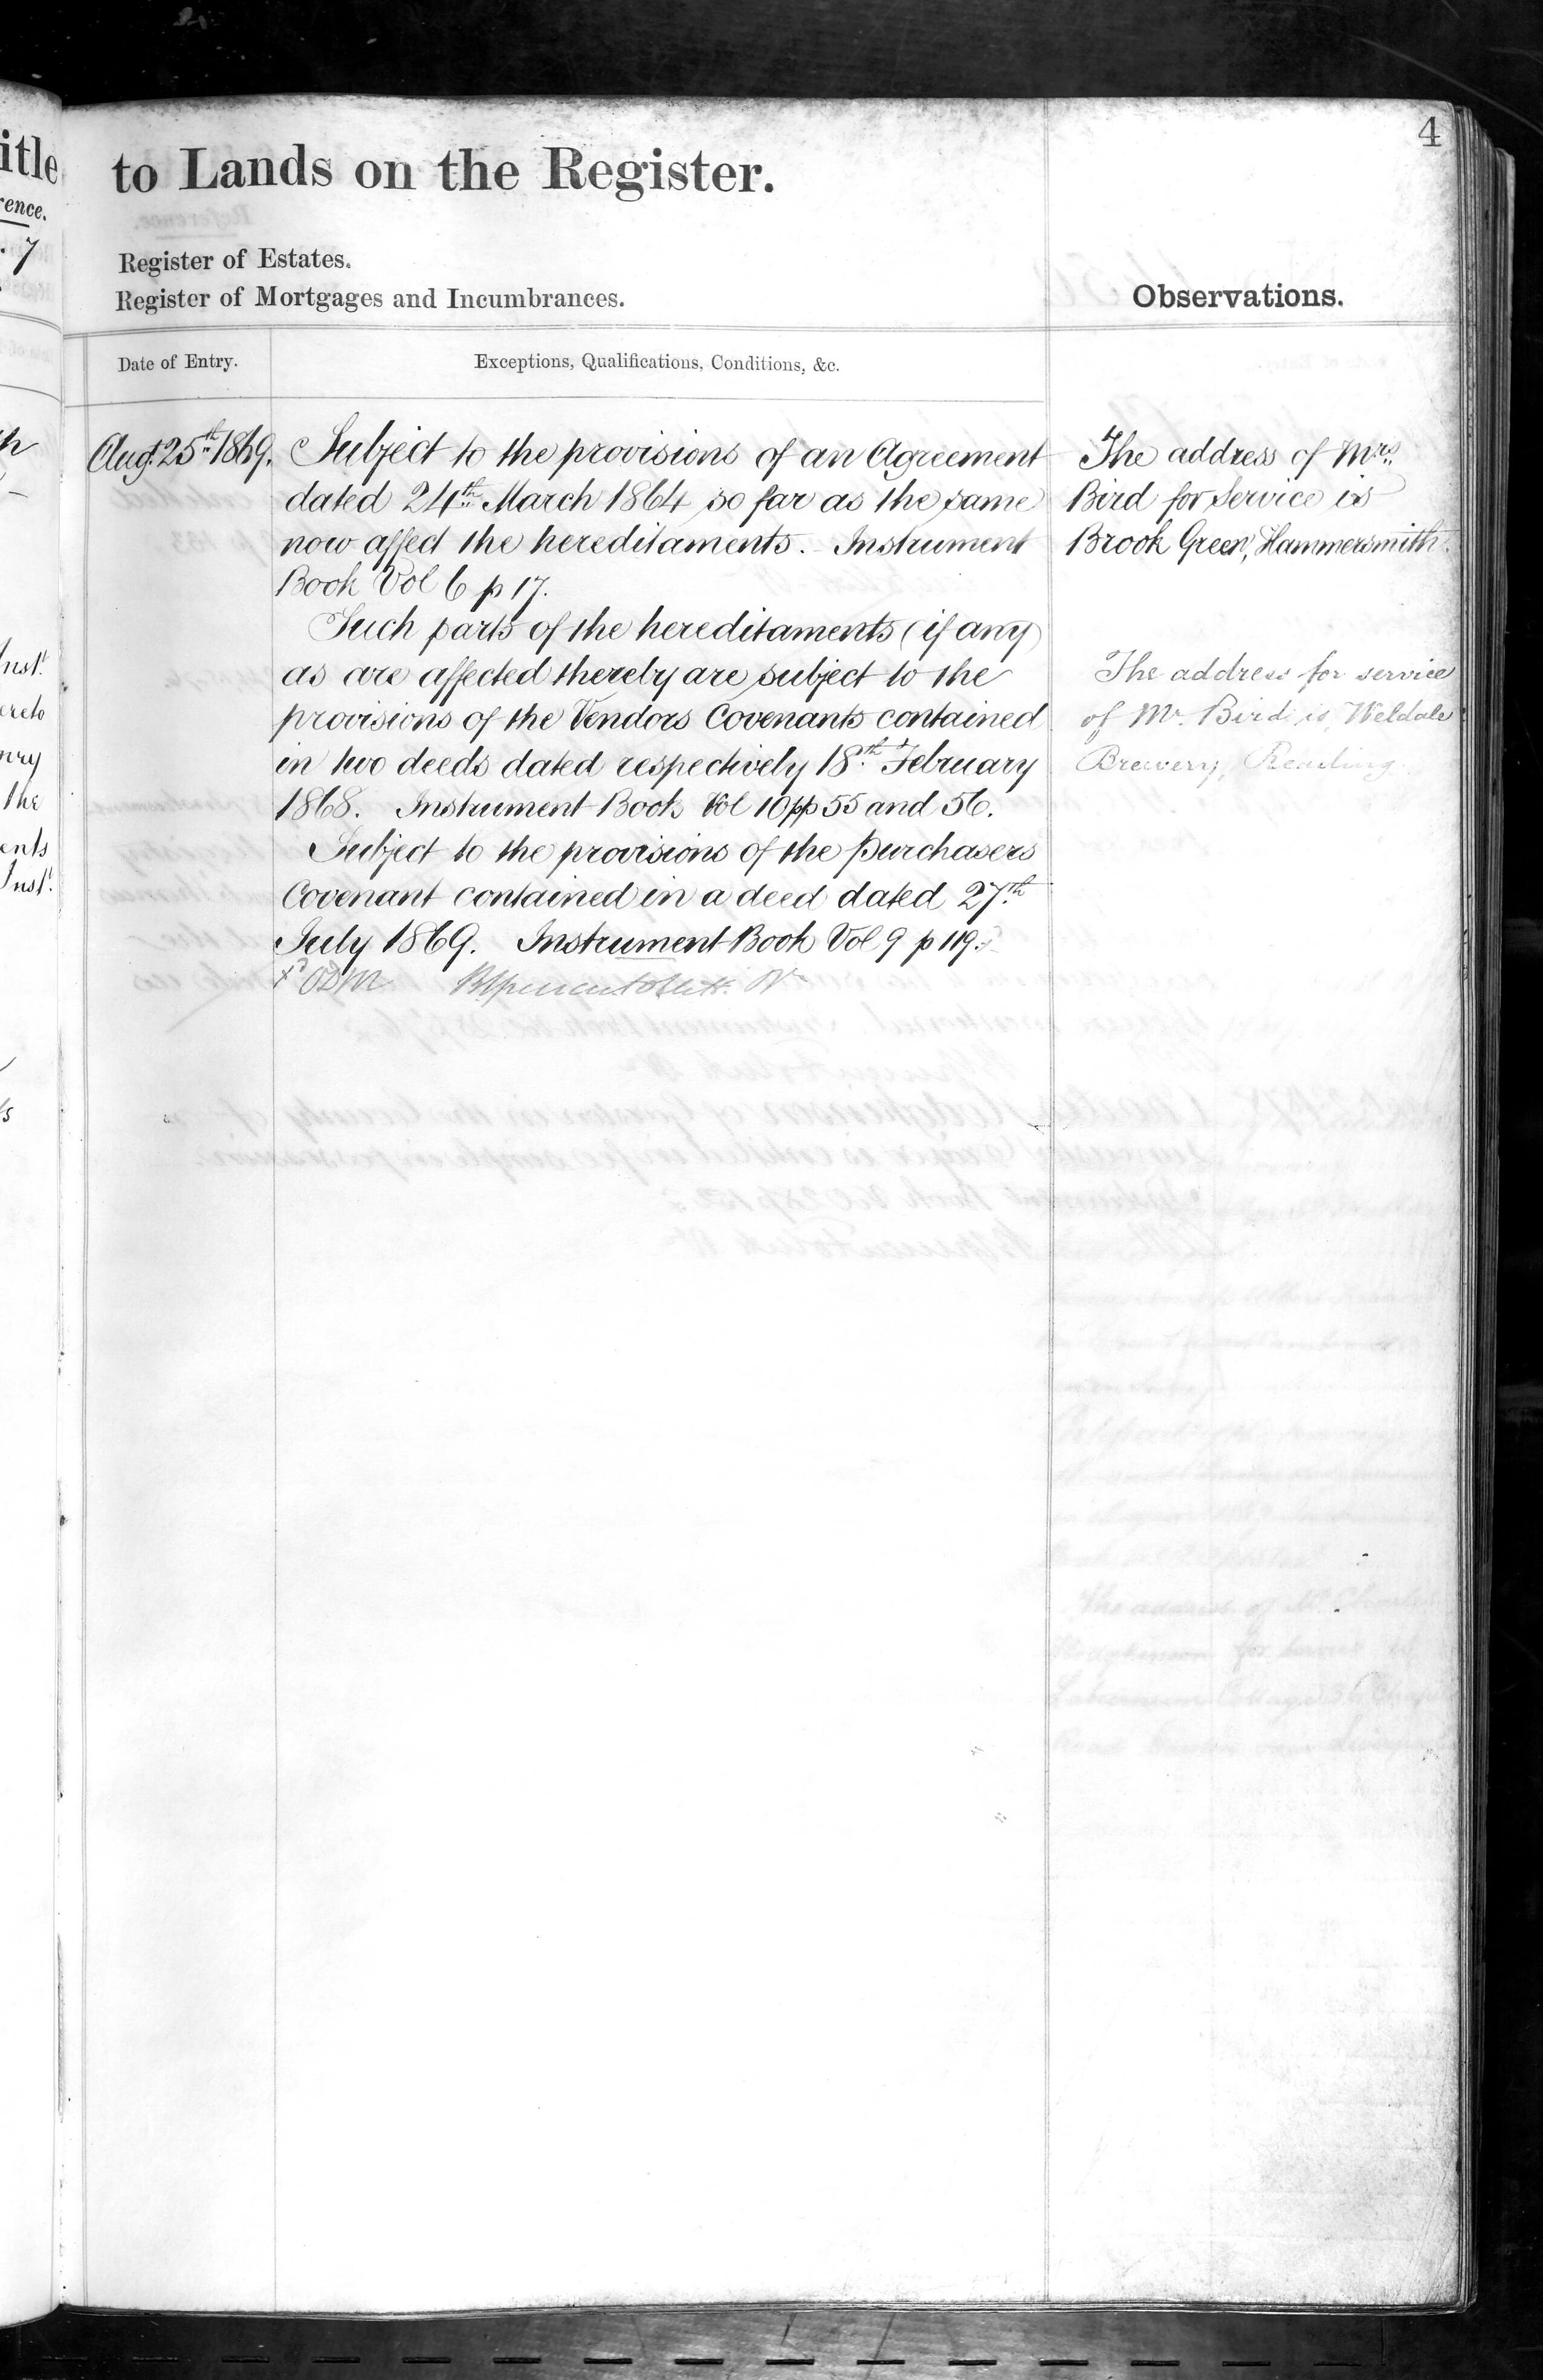 4
itle
to Lands on the Register.
rence.
7
Register of Estates.
Register of Mortgages and Incumbrances.
Observations.
Date of Entry.
Exceptions, Qualifications, Conditions, &c.
Aug. 25th 1869.
Subject to the provisions of an Agreement
dated 24th March 1864 so far as the same
now affect the hereditaments. Instrument
Book Vol 6 p 17.
Such parts of the hereditaments (if any)
as are affected thereby are subject to the
provisions of the Vendors Covenants contained
in two deeds dated respectively 18th February
1868. Instrument Book Vol 10 pp 55 and 56.
Subject to the provisions of the Purchasers
Covenant contained in a deed dated 27th
July 1869. Instrument Book Vol 9 p 119.
The address of Mrs.
Bird for Service is
Brook Green, Hammersmith.
The address for service
of Mr. Bird is Weldale
Brewery, Reading.
Inst.
ereto
nry
the
ents
Inst.